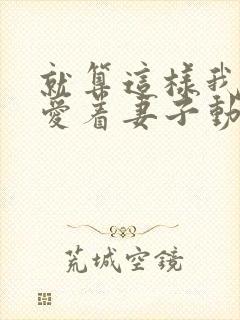 就算這樣我
愛着妻子動
荒城空鏡